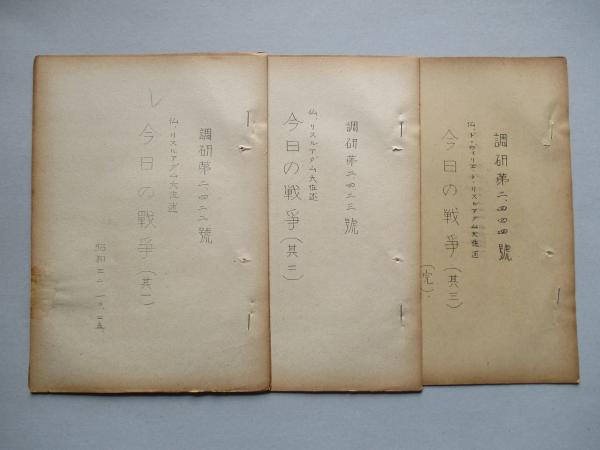 調研第二、四二二號
仏、リスルアダム大佐述
レ 今日の戰爭(其一)
昭和
調研第二、四二三號
仏、リスルアダム大佐述
今日の戦爭(其二)
調研第二、四四四號
仏、ド・ウィリエ・ド・リスルアダム大佐述
今日の戦爭(其三)
(完)